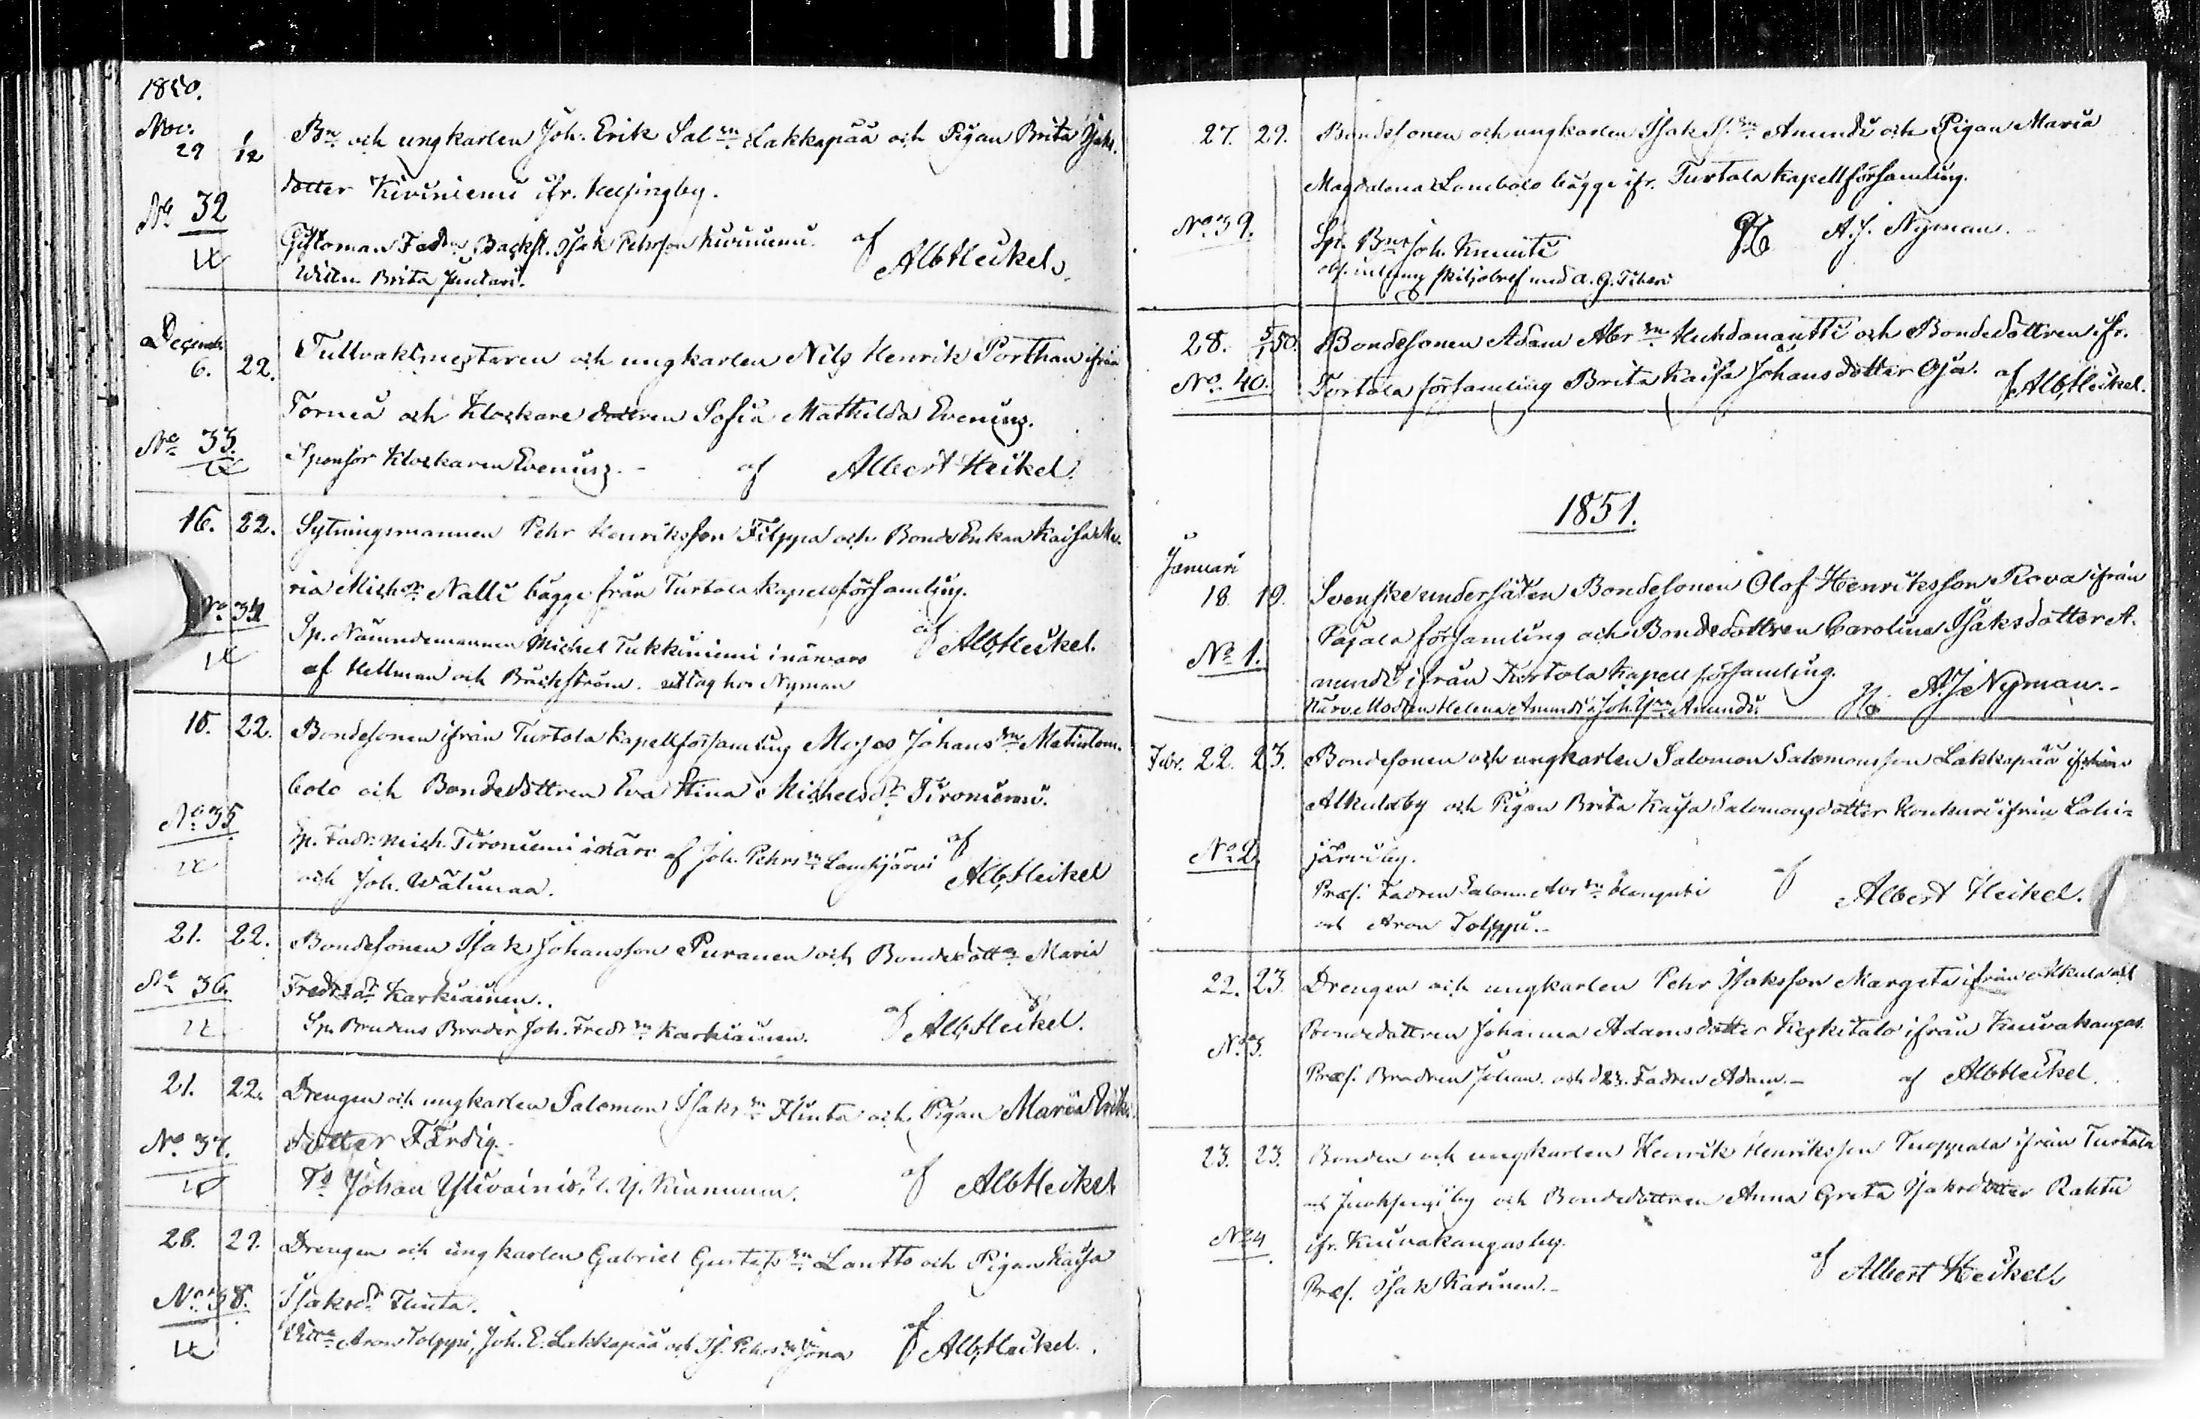 1850.
Nov. 29 1/12 Bn och ungkarlen Joh. Erik Salsn Lakkapää och Pigan Brita Isaks
dotter Kiviniemi ifr. Helsingby.
No 32 Giftoman Fadn Isak Pehrsson Kiviniemi. af
Vittn. Brita Juntari. AlbHeikel.
Decemb. 6. 22. Tullvaktmestaren och ungkarlen Nils Henrik Porthan ifrån
Torneå och Klockare dottren Sofia Mathilda Evenius.
No 33. Sponsor Klockaren Evenius. - af Albert Heikel.
16. 22. Sytningsmannen Pehr Henriksson Filppa och Bonde Enkan Kaisa Ma-
ria Michdr Nalli bägge från Turtola kapellförsamling.
No 34 Sp. Nämndemannen Michel Tukkiniemi i närvaro af AlbHeikel.
af Hellman och Bäckström. uttag hos Nyman
15. 22. Bondesonen ifrån Turtola kapellförsamling Moses Johanssn Matinlom-
bolo och Bondedottren Eva Stina Michelsdr Tironiemi.
No 35 Sp. Fadr. Mich. Tironiemi i närv af Joh. Pehrssn Lamhjärvi af
och Joh. Wälimaa. AlbHeikel
21. 22. Bondesonen Isak Johansson Puranen och Bondedottrn Maria
No 36. Fredrsdr Karkiainen..
Sp. Brudens Broder Joh. Fredrsn Karkiainen. af AlbHeikel.
21. 22. Drengen och ungkarlen Salomon Isakssn Flinta och Pigan Maria Eriks
No 37. dotter Färdig.
Joh​an Ylivainio, Kinnunen. af AlbHeikel
28. 29. Drengen och ungkarlen Gabriel Gustafssn Lantto och Pigan Kaisa
No 38. Isaksdr Flinta.
Aron Tolppi, Joh. E. Lakkapää och Is. Pehrssn af AlbHeikel.
27. 29. Bondesonen och ungkarlen Isak Is.sn Amundi och Pigan Maria
Magdalena Lombolo bägge ifr. Turtola kapellförsamling.
No 39. Sp. Joh. A. J. Nyman.
skiljobref med
28. 5/1 50. Bondesonen Adam Abrsn Huhdanantti och Bondedottren ifr.
No. 40. Tortola församling Brita Kaisa Johansdotter Oja. af AlbHeikel.
1851.
Januari
18. 19. Svenske undersåten Bondesonen Olof Henriksson Rova ifrån
Pajala församling och Bondedottren Carolina Isaksdotter A-
No 1. mundi ifrån Turtola Kapell församling.
Närv. Modren Helena Amundi o Joh. Amundi. A. J. Nyman.-
Febr. 22. 23. Bondesonen och ungkarlen Salomon Salomonsson Lakkapää ifrån
Alkulaby och Pigan Brita Kaisa Salomonsdotter Konkuri ifrån Lohi-
No 2. järviby.
Præs. Fadren Salom. af Albert Heikel.
och Aron Tolppi.-
22. 23. Drengen och ungkarlen Pehr Isaksson Margeta ifrån Alkula och
No 3. Bondedottren Johanna Adamsdotter Keskitalo ifrån Kuivakangas.
Præs. Brodren Johan. och Fadren Adam.- af AlbHeikel.
23. 23. Bonden och ungkarlen Henrik Henriksson Tuoppala ifrån Turtola
och Juoksengi by och Bondedottren Anna Greta Isaksdotter Rahtu
No 4 ifr. Kuivakangasby.
Præs. Isak Karinen.- af Albert Heikel